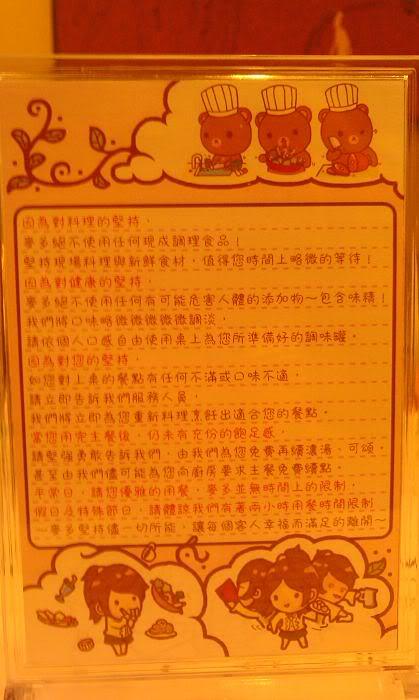 因為對料理的堅持，
麥多絕不使用任何現成調理食品！
堅持現場料理與新鮮食材，值得您時間上略微的等待！
因為對健康的堅持，
麥多絕不使用任何有可能危害人體的添加物～包含味精！
我們將口味略微微微微微調淡，
請依個人口感自由使用桌上為您所準備好的調味罐。
因為對您的堅持，
如您對上桌的餐點有任何不滿或口味不適，
請立即告訴我們服務人員，
我們將立即為您重新料理烹飪出適合您的餐點。
當您用完主餐後，仍未有充份的飽足感，
請堅強勇敢告訴我們，由我們為您免費再續濃湯，可頌，
甚至由我們儘可能為您向廚房要求主餐免費續點。
平常日，請您優雅的用餐，麥多並無時間上的限制，
假日及特殊節日，請體諒我們有著兩小時用餐時間限制
～麥多堅持儘一切所能，讓每個客人幸福而滿足的離開～